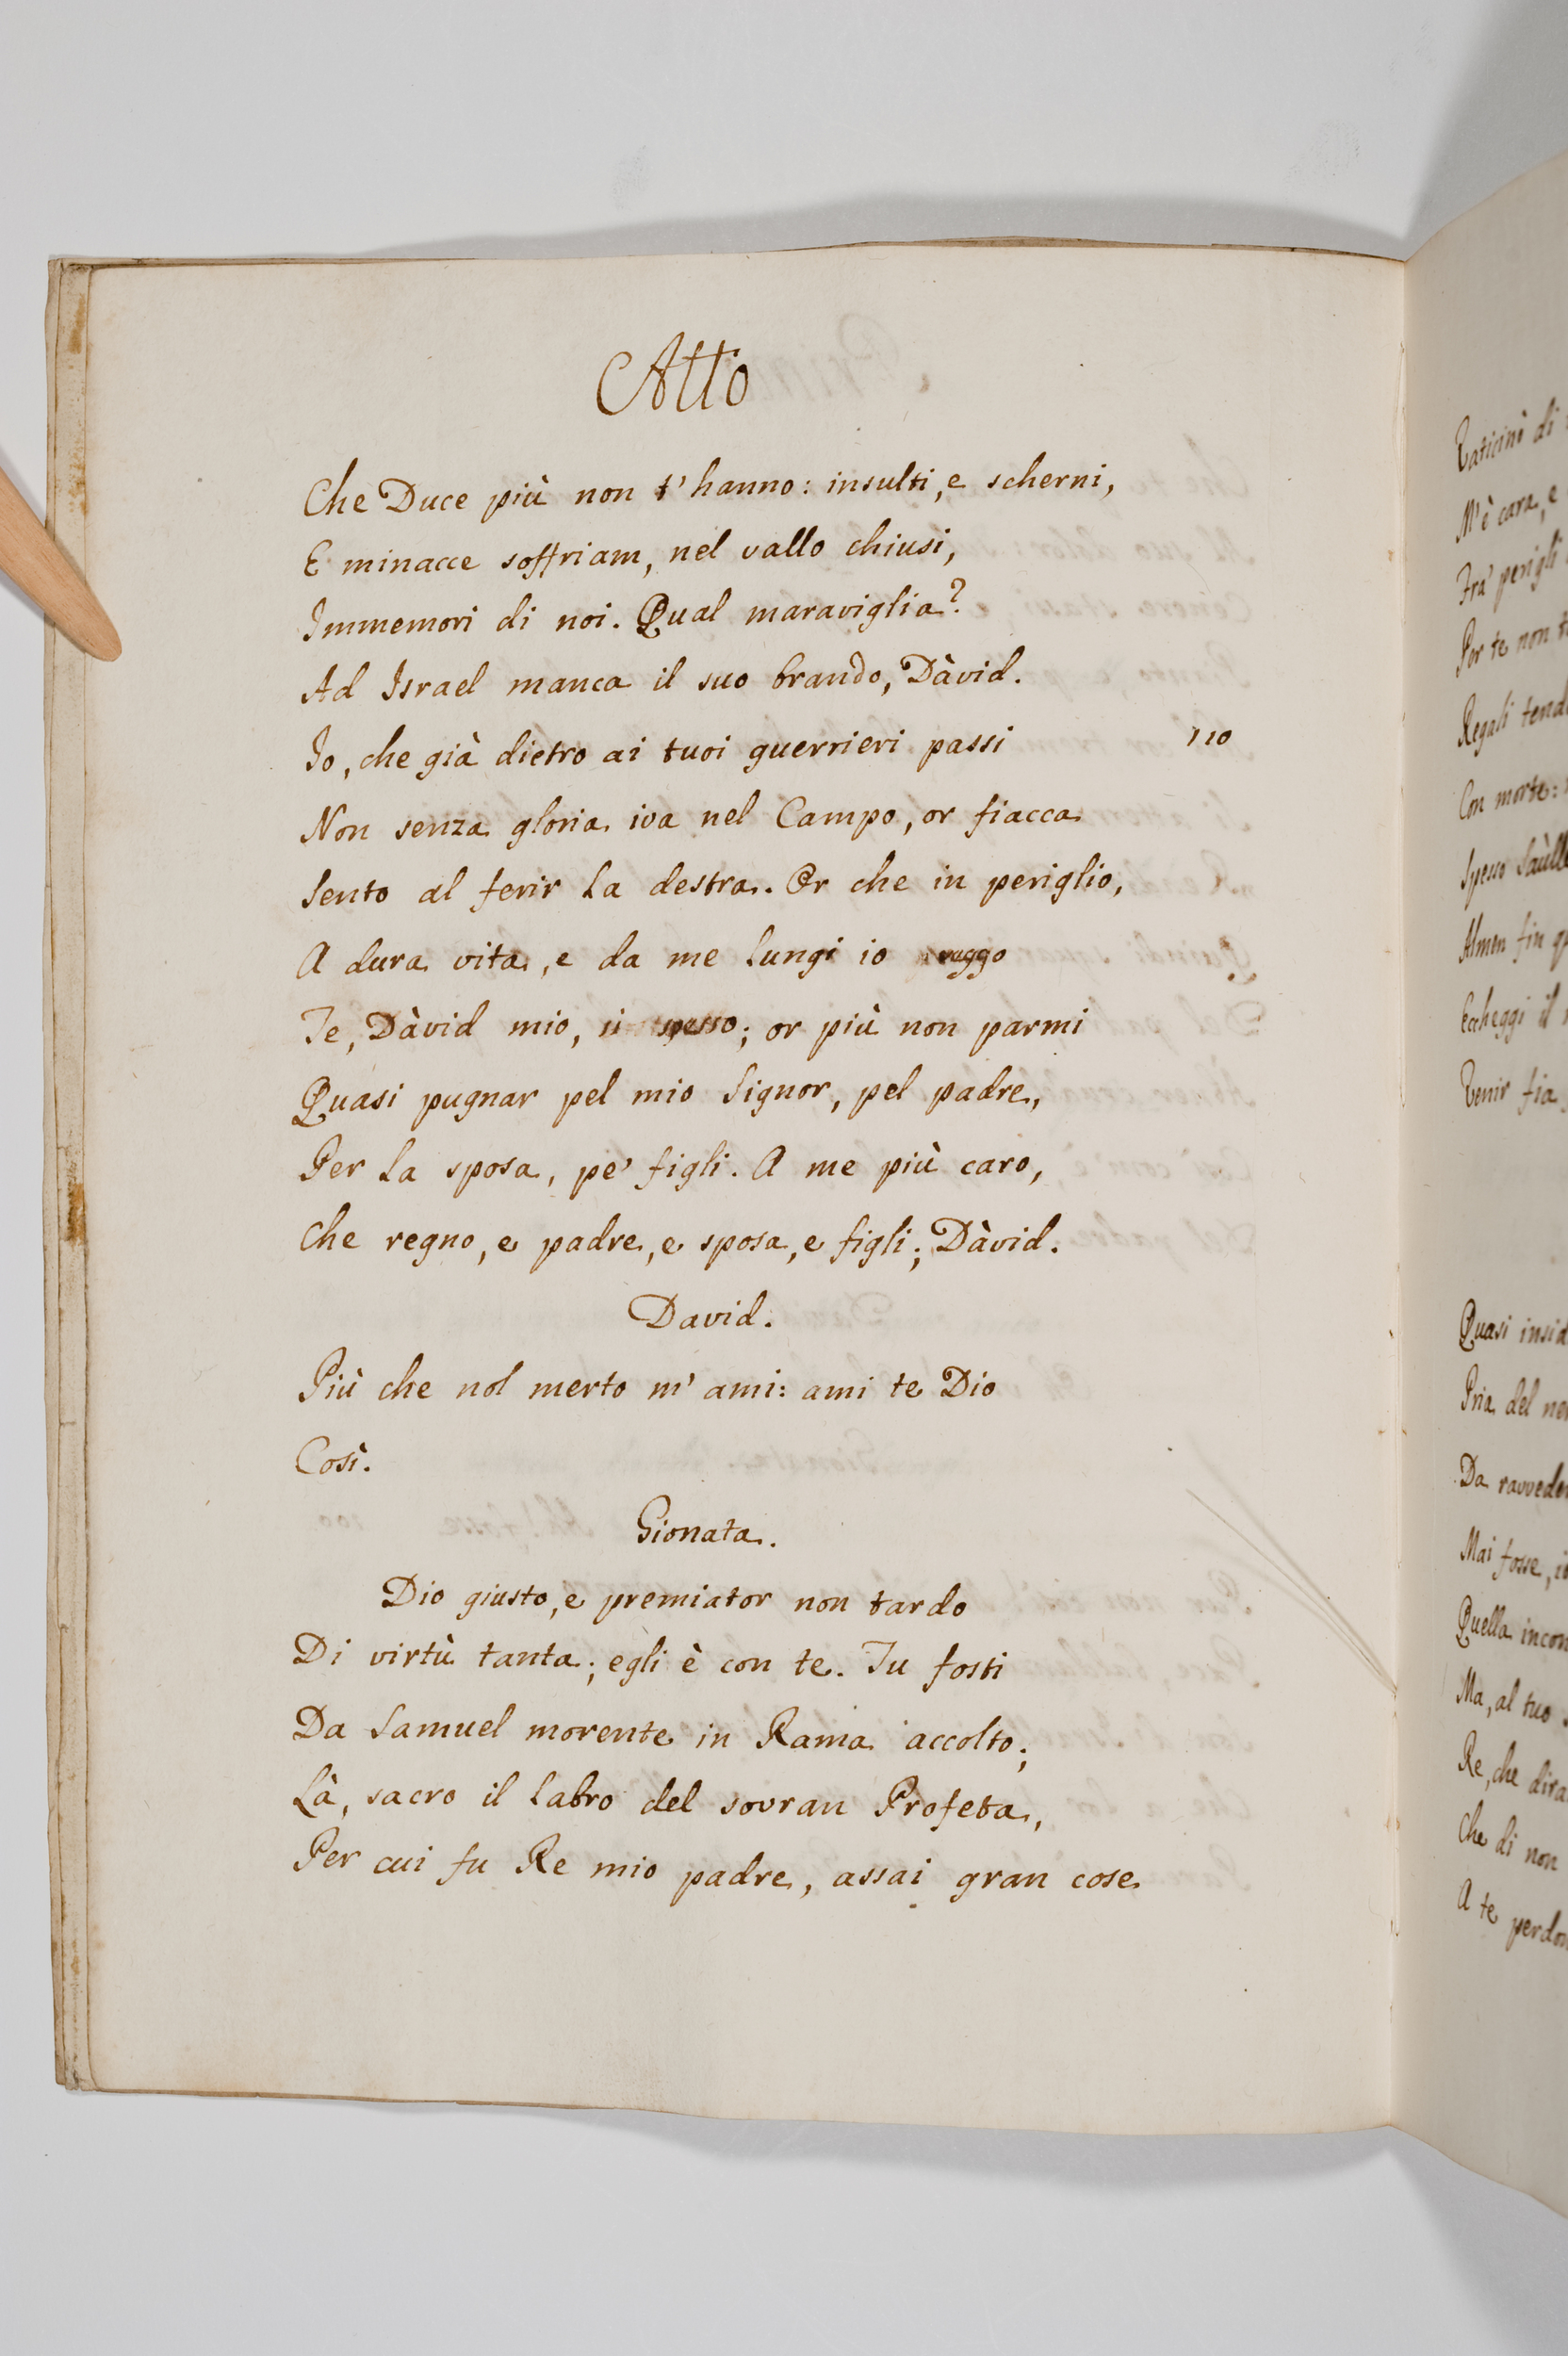 Atto
Che Duce più non t'hanno: insulti, e scherni,
E minacce soffriam, nel vallo chiusi,
Immemori di noi. Qual maraviglia?
Ad Israel manca il suo brando, Dàvid.
Io, che già dietro ai tuoi guerrieri passi 110
Non senza gloria iva nel Campo, or fiacca
Sento al ferir la destra. Or che in periglio,
A dura vita, e da me lungi io veggo
Te, Dàvid mio, sì spesso; or più non parmi
Quasi pugnar pel mio Signor, pel padre,
Per la sposa, pe' figli. A me più caro,
Che regno, e padre, e sposa, e figli; Dàvid.
David.
Più che nol merto m'ami: ami te Dio
Così.
Gionata.
Dio giusto, e premiator non tardo
Di virtù tanta; egli è con te. Tu fosti
Da Samuel morente in Rama accolto;
Là, sacro il labro del sovran Profeta,
Per cui fu Re mio padre, assai gran cose
Vaticinò di
M'è cara, e
Fra' perigli
Per te non
Regali
Con morte:
Spesso Saùlle
Almen fin
Echeggi il
Venir fia
Quasi
Pria del
Da
Mai fosse,
Quella
Ma, al tuo
Re, che
Che di non
A te